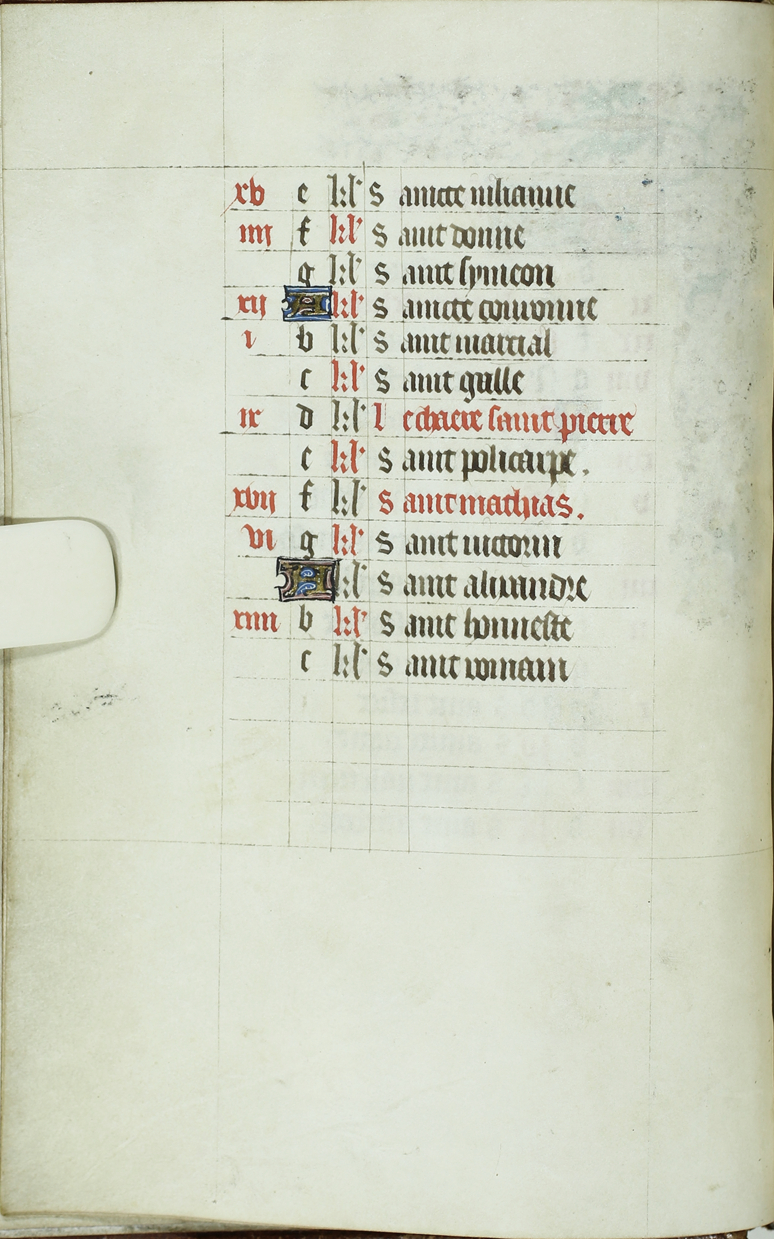 xv e kl' Saincte iulianne
iiij f kl' Saint donne
g kl' Saint symeon
xij A kl' Saincte couronne
i b kl' Saint marcial
c kl' Saint galle
ix d kl' Le chaere saint pierre
e kl' Saint policarpe.
xvij f kl' Saint mathias.
vi g kl' Saint uictorin
A kl' Saint alixandre
xiiij b kl' Saint honneste
c kl' Saint romain